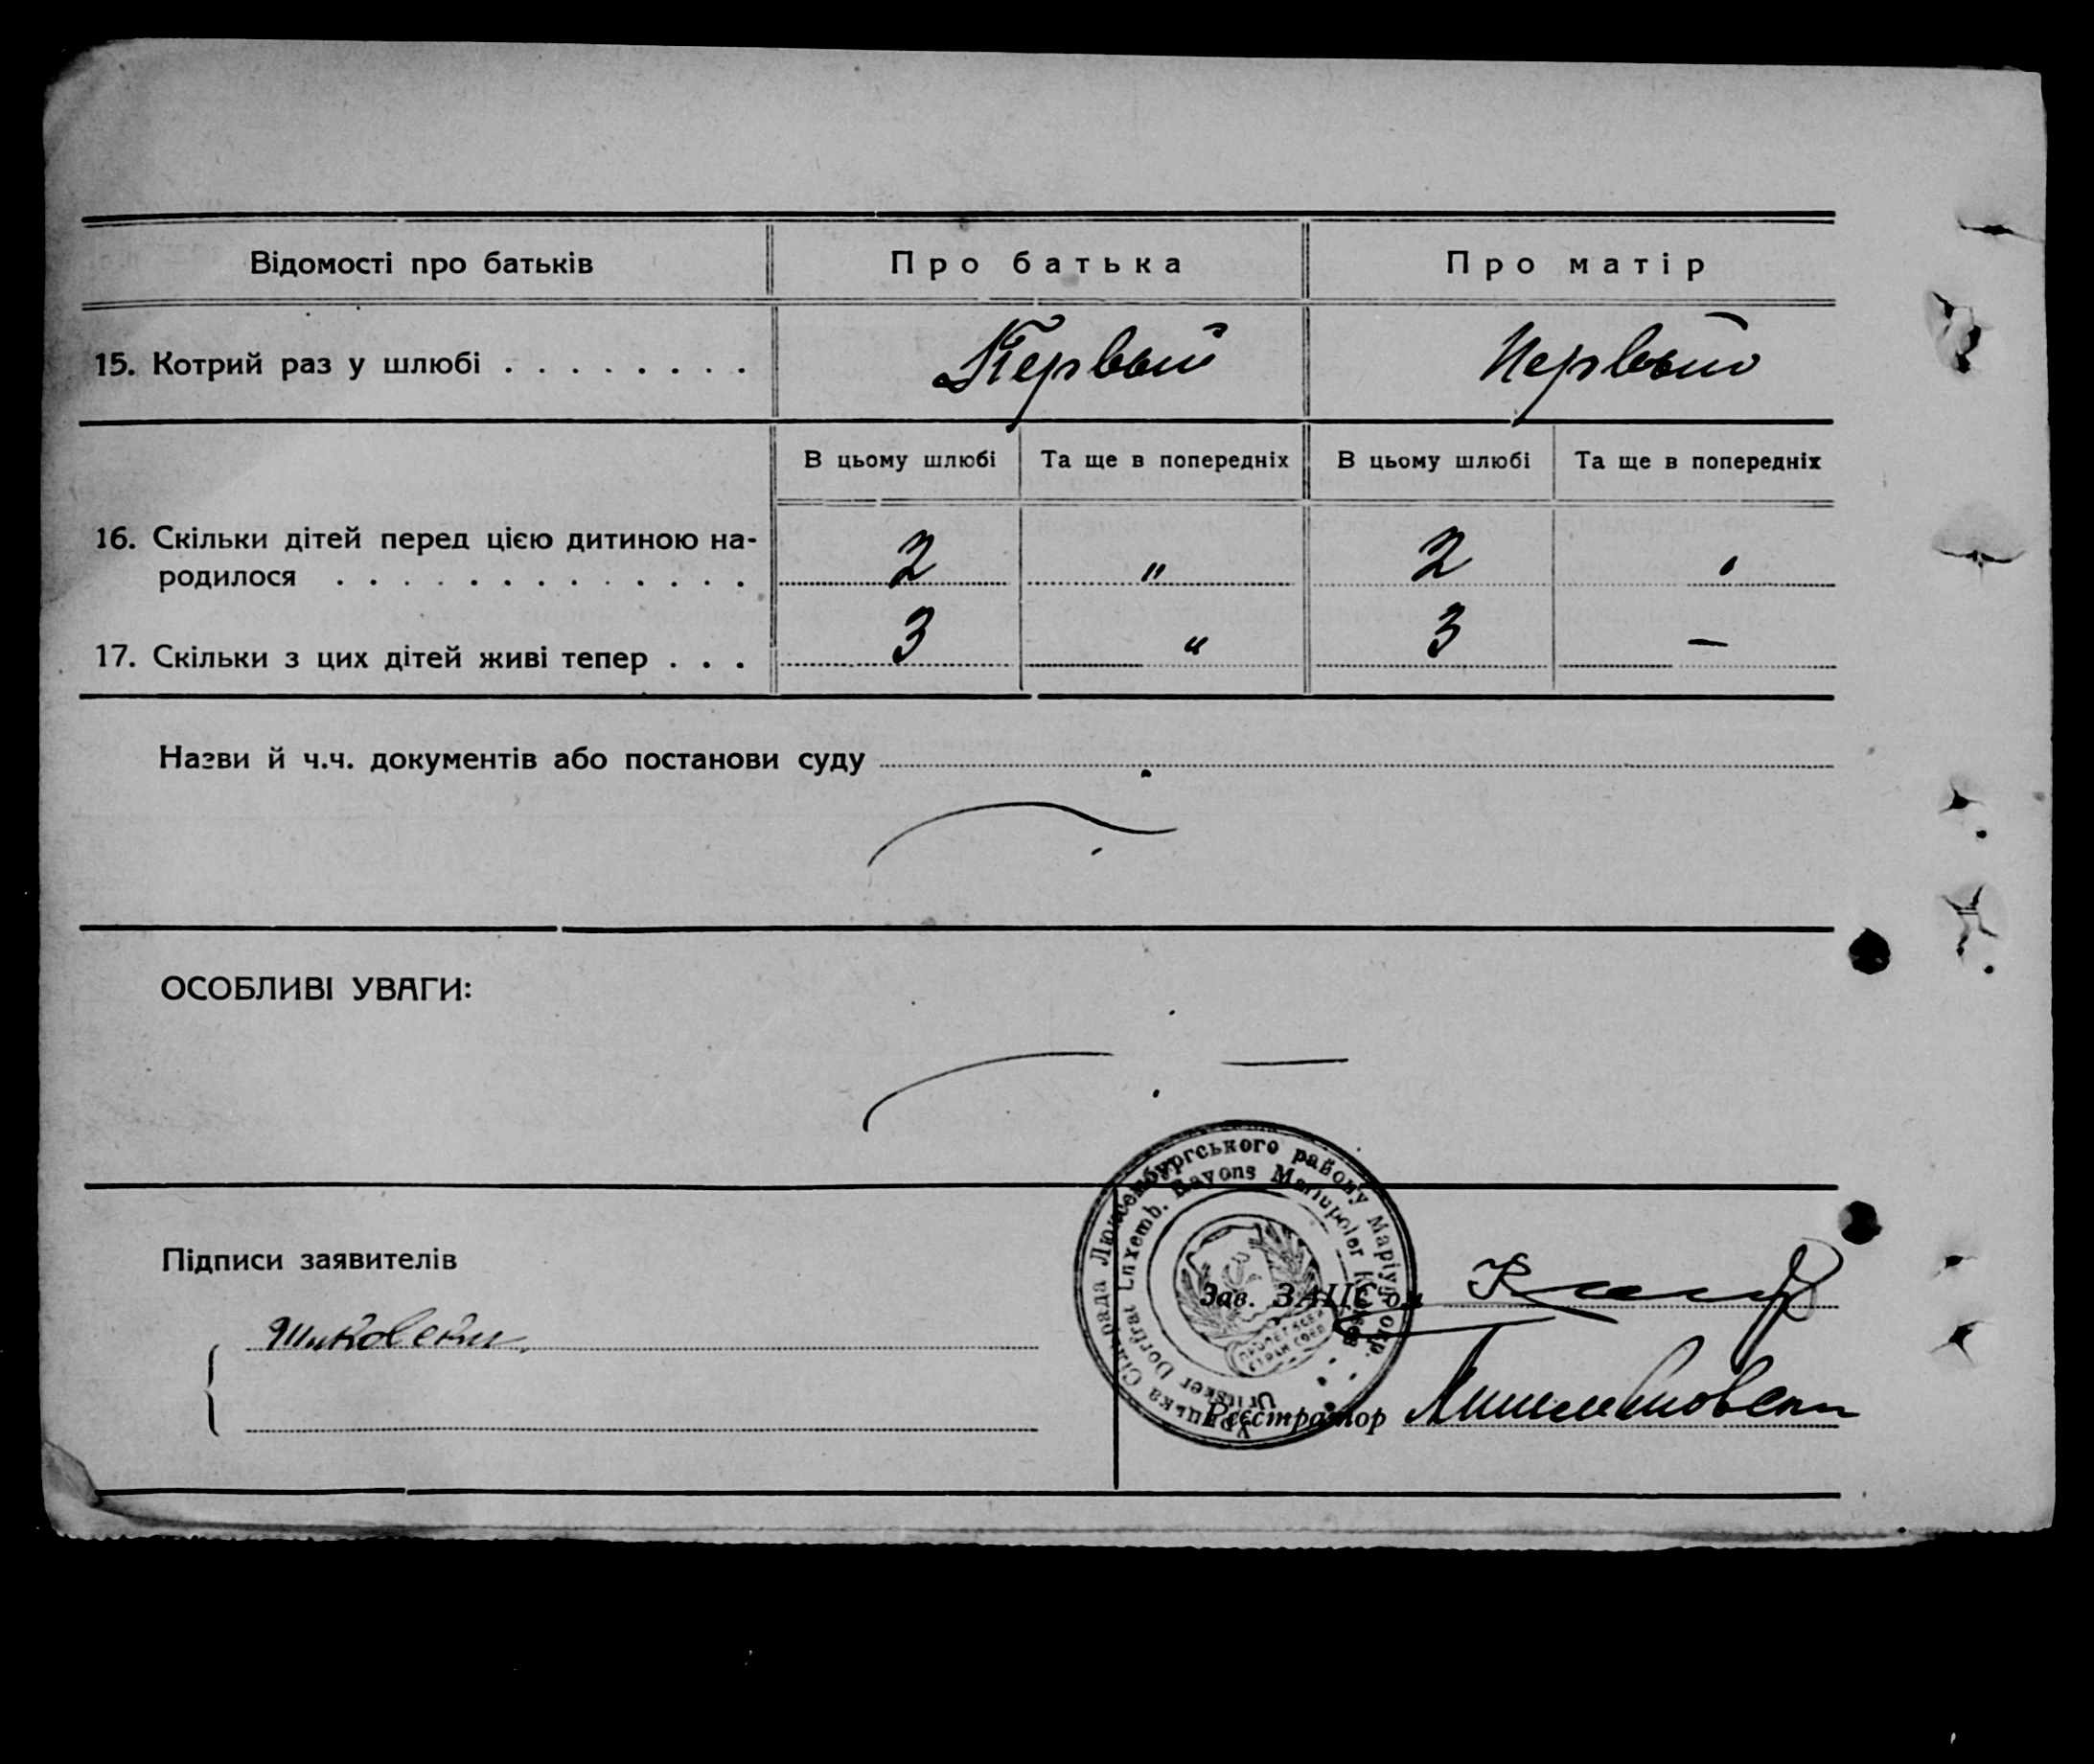 Відомості про батьків
Про батька
Про матір
15. Котрий раз у шлюбі . . . . . . . .
Первый
Первый
В цьому шлюбі
Та ще в попередніх
В цьому шлюбі
Та ще в попередніх
16. Скільки дітей перед цією дитиною на-
родилося . . . . . . . . . . . . .
2
"
2
17. Скільки з цих дітей живі тепер . . .
3
"
3
—
Назви й ч.ч. документів або постанови суду
ОСОБЛИВІ УВАГИ:
Урицька Сільрада Люксембургського району Маріуп. окр.
Uritsker Dorfrat Luxemb. Rayons Mariupoler Kreises
Підписи заявителів
Зав. ЗАЦС'ом
Реєстратор